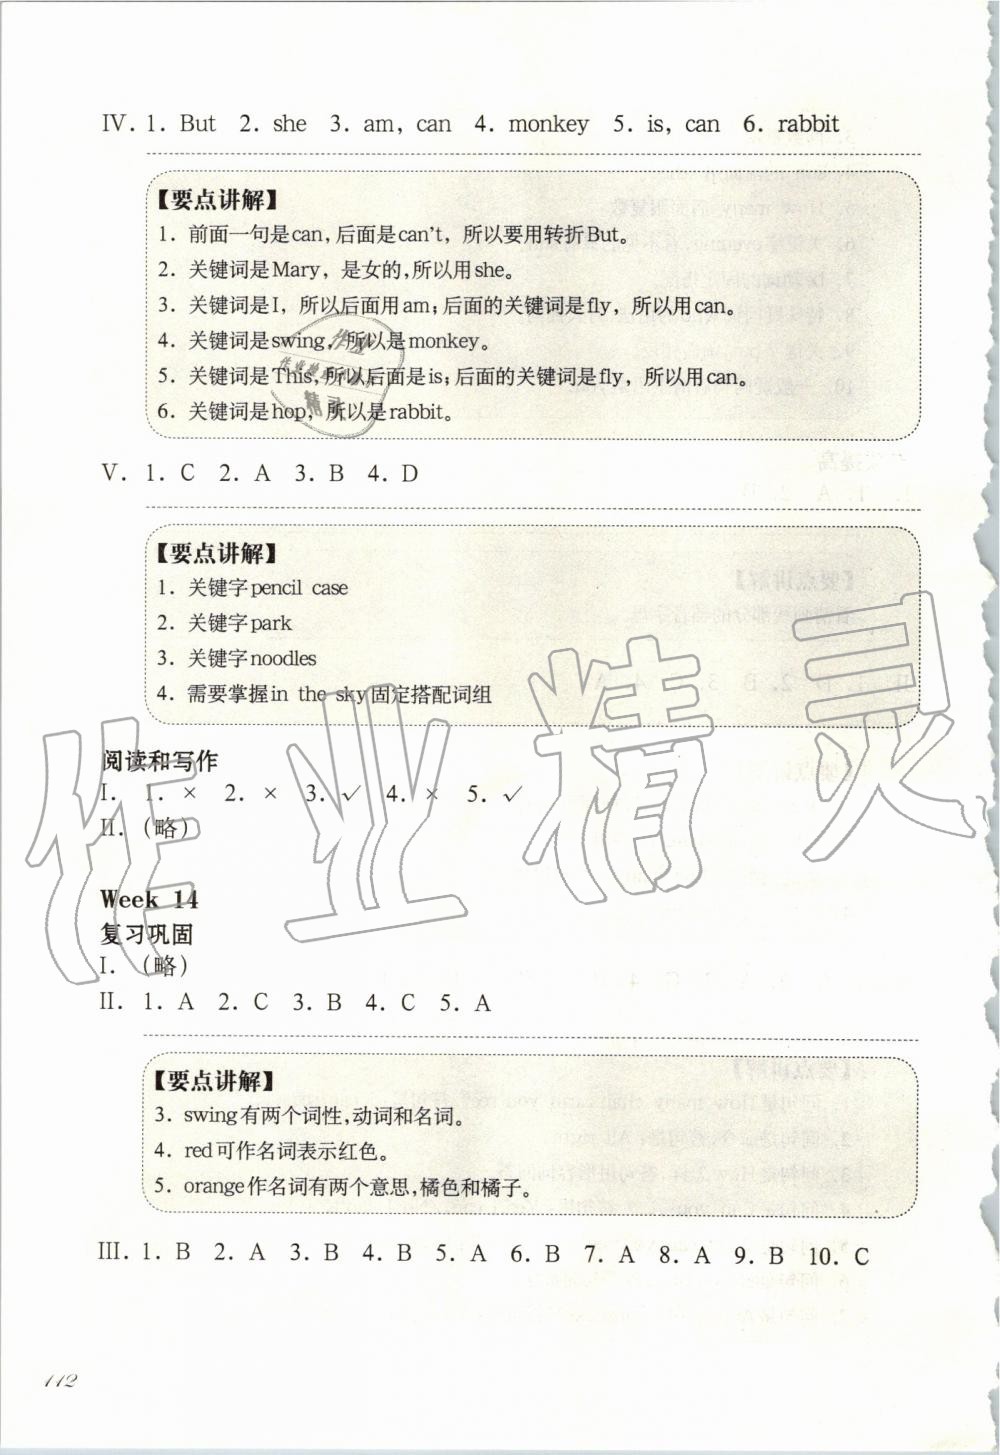 IV. 1. But 2. she 3. am, can 4. monkey 5. is, can 6. rabbit
【要点讲解】
1. 前面一句是can,后面是can't，所以要用转折But。
2. 关键词是Mary，是女的,所以用she。
3. 关键词是I，所以后面用am;后面的关键词是fly，所以用can。
4. 关键词是swing，所以是monkey。
5. 关键词是This,所以后面是is;后面的关键词是fly，所以用can。
6. 关键词是hop，所以是rabbit。
V. 1. C 2. A 3. B 4. D
【要点讲解】
1. 关键字pencil case
2. 关键字park
3. 关键字noodles
4. 需要掌握in the sky固定搭配词组
阅读和写作
I. 1. × 2. × 3. ✓ 4. × 5. ✓
II. (略)
Week 14
复习巩固
I. (略)
II. 1. A 2. C 3. B 4. C 5. A
【要点讲解】
3. swing有两个词性,动词和名词。
4. red可作名词表示红色。
5. orange作名词有两个意思,橘色和橘子。
III. 1. B 2. A 3. B 4. B 5. A 6. B 7. A 8. A 9. B 10. C
112
作业精灵